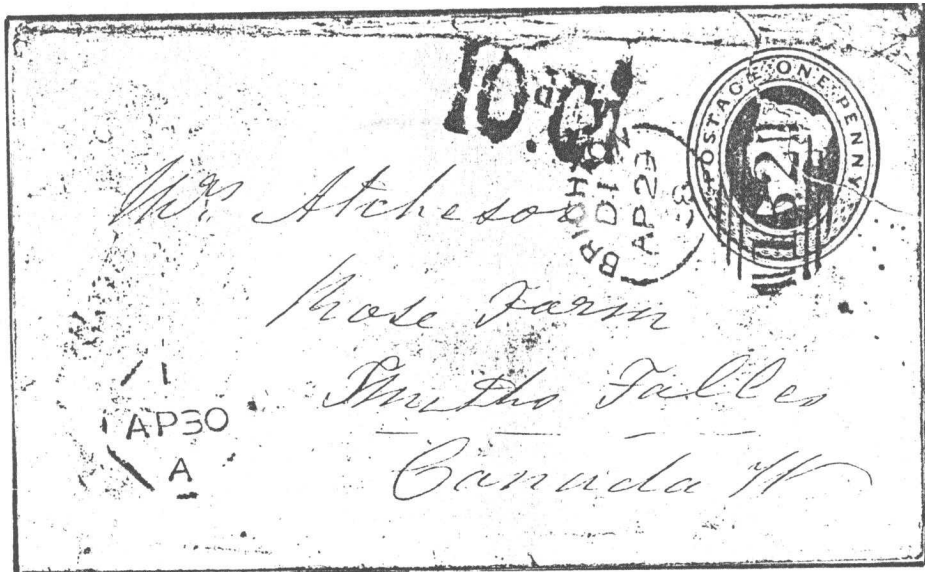 10.Cy
POSTAGE ONE PENNY
132
BRIGHTO
D1
AP29
Mrs Atcheson
Rose Farm
Smiths Falls
Canada W
AP30
A